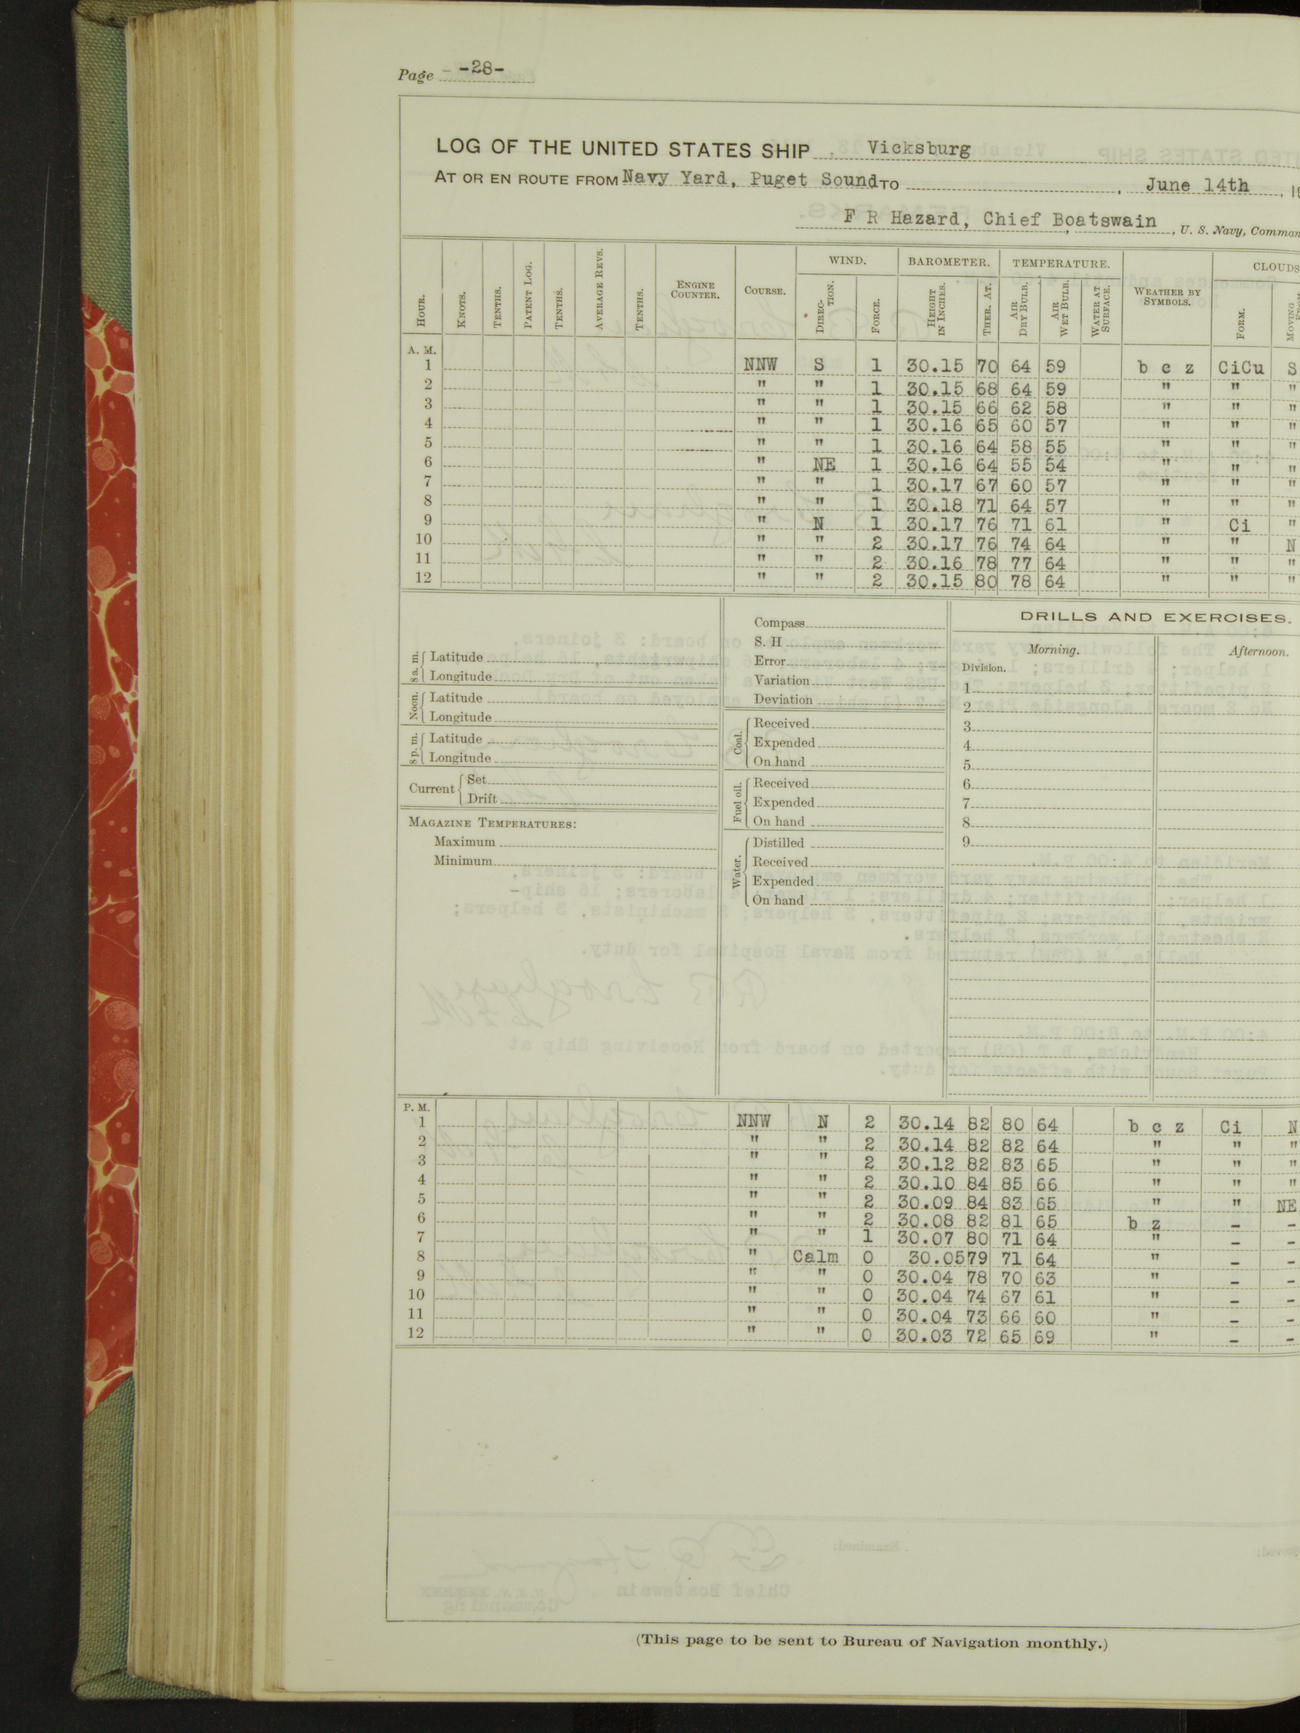 Page -28-
LOG OF THE UNITED STATES SHIP Vicksburg
AT OR EN ROUTE FROM Navy Yard, Puget Sound TO , June 14th , 19
F R Hazard, Chief Boatswain , U. S. Navy, Comman
HOUR. KNOTS. TENTHS. PATENT LOG. TENTHS. AVERAGE REVS. TENTHS. ENGINE COUNTER. COURSE. WIND. DIRECTION. FORCE. BAROMETER. HEIGHT IN INCHES. THER. AT. TEMPERATURE. AIR DRY BULB. AIR WET BULB. WATER AT SURFACE. WEATHER BY SYMBOLS. CLOUDS FORM. MOVING
A. M.
1 NNW S 1 30.15 70 64 59 b c z CiCu S
2 " " 1 30.15 68 64 59 " " "
3 " " 1 30.15 66 62 58 " " "
4 " " 1 30.16 65 60 57 " " "
5 " " 1 30.16 64 58 55 " " "
6 " NE 1 30.16 64 55 54 " " "
7 " " 1 30.17 67 60 57 " " "
8 " " 1 30.18 71 64 57 " " "
9 " N 1 30.17 76 71 61 " Ci "
10 " " 2 30.17 76 74 64 " " N
11 " " 2 30.16 78 77 64 " " "
12 " " 2 30.15 80 78 64 " " "
8 a. m. Latitude
Longitude
Noon. Latitude
Longitude
8 p. m. Latitude
Longitude
Current Set
Drift
MAGAZINE TEMPERATURES:
Maximum
Minimum
Compass
S. H
Error
Variation
Deviation
Coal. Received
Expended
On hand
Fuel oil. Received
Expended
On hand
Water. Distilled
Received
Expended
On hand
DRILLS AND EXERCISES.
Morning. Afternoon.
Division.
1
2
3
4
5
6
7
8
9
P. M.
1 NNW N 2 30.14 82 80 64 b c z Ci N
2 " " 2 30.14 82 82 64 " " "
3 " " 2 30.12 82 83 65 " " "
4 " " 2 30.10 84 85 66 " " "
5 " " 2 30.09 84 83 65 " " NE
6 " " 2 30.08 82 81 65 b z - -
7 " " 1 30.07 80 71 64 " - -
8 " Calm 0 30.05 79 71 64 " - -
9 " " 0 30.04 78 70 63 " - -
10 " " 0 30.04 74 67 61 " - -
11 " " 0 30.04 73 66 60 " - -
12 " " 0 30.03 72 65 69 " - -
(This page to be sent to Bureau of Navigation monthly.)